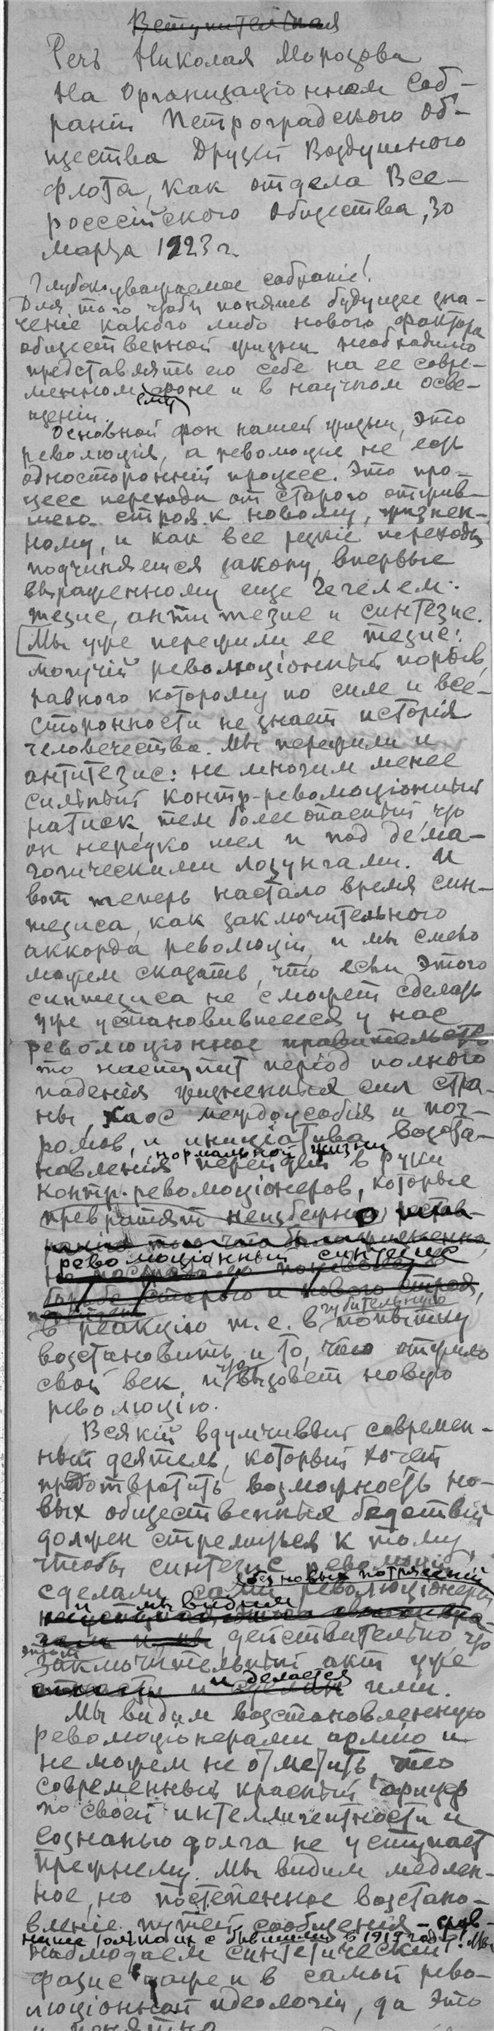 Вступительная
Речь Николая Морозова
на Организаціонном Соб-
раніи Петроградского Об-
щества Друзей Воздушного
Флота, как отдела Все-
россейского общества, 30
марта 1923 г.
Глубокоуважаемое собраніе!
Для того чтобы понять будущее зна-
ченіе какого либо нового фактора
общественной жизни необходимо
представлять его себе на ее совре-
менном фоне и в научном осве-
щеніи.
Основной фон нашей жизни, это
революція, а революция не есть
односторонній процесс. Это про-
цесс перехода от старого отжив-
шего строя к новому, жизнен-
ному, и как все резкіе переходы
подчиняется закону, впервые
выраженному еще Гегелем:
тезис, антитезис и синтезис.
[Мы уже пережили ее тезис:
могучій революціонный порыв,
равного которому по силе и все-
сторонности не знает исторія
человечества. Мы пережили и
антитезис: не многим менее
сильный контр-революціонный
натиск тем более опасный, что
он нередко шел и под дема-
гогическими лозунгами. И
вот теперь настало время син-
тезиса, как заключительного
аккорда революціи, и мы смело
можем сказать, что если этого
синтезиса не сможет сделать
уже установившееся у нас
революціонное правительство
то наступит період полного
паденія жизненных сил стра-
ны, хаос междоусобія и пог-
ромов, и иниціатива возста-
новленія нормальной жизни
перейдет в руки
контр-революціонеров, которые
превратят неизбежно
революціонный синтезис
борьбе старого и нового строя,
в реакцію т.е. в губительную попытку
возстановить и то, что отжило
свой век, и что вызовет новую
революцію.
Всякій вдумчивый современ-
ный деятель, который хочет
предотвратить возможность но-
вых общественных бедствій
должен стремиться к тому,
чтобы синтезис революціи,
без новых потрясеній
сделали сами революціонеры
и мы видим
действительно, что
этот
заключительный акт уже
и делается
ими.
Мы видим возстановленную
революціонерами армію и
не можем не отметить, что
современный красный офицер
по своей интеллигентности и
сознанью долга не уступает
прежнему. Мы видим медлен-
ное, но постепенное возстано-
вленіе путей сообщенія - срав-
ните только их с бывшими в 1919 году! Мы
наблюдаем синтетический
фазис даже и в самой рево-
люціонной идеологіи, да это
и понятно